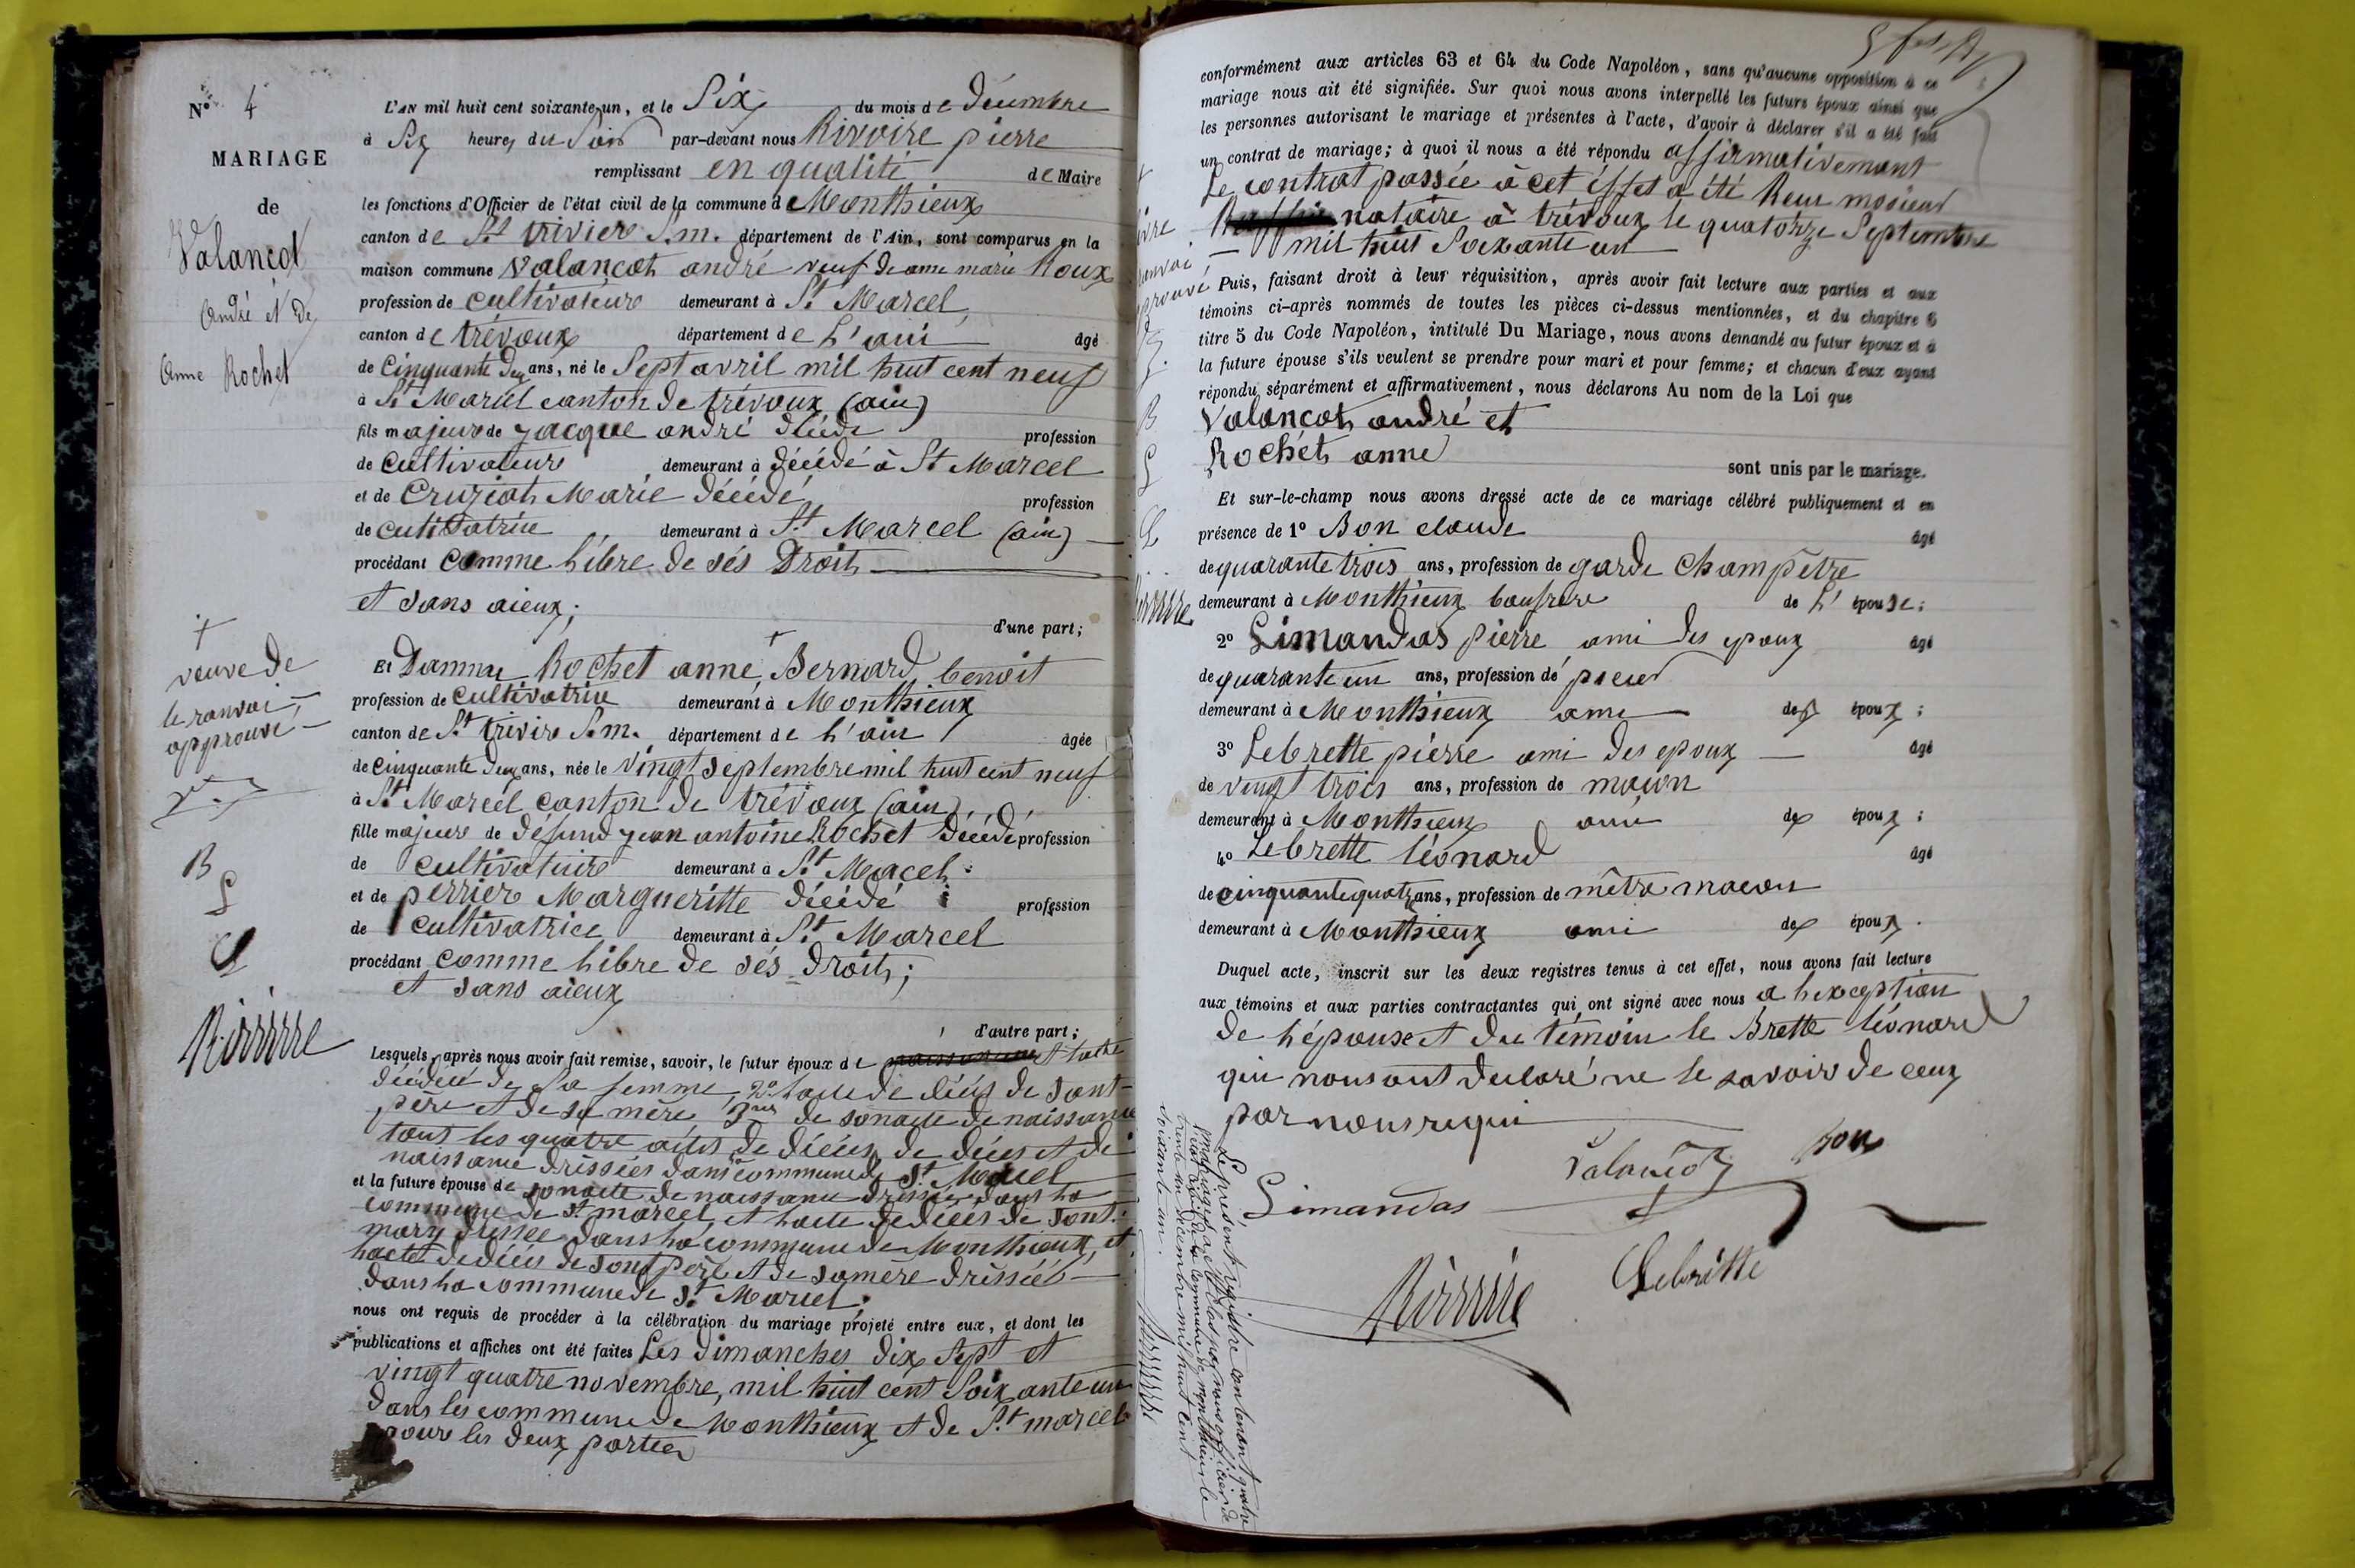 N° 4
MARIAGE
de
Valancot
André et de
Anne Rochet
L'AN mil huit cent soixante un, et le Six du mois de décembre
à Six heures du Soir par-devant nous Rivoire pierre
remplissant en qualité de Maire
les fonctions d'Officier de l'état civil de la commune de Monthieux
canton de St trivier S.m. département de l'Ain, sont comparus en la
maison commune Valançot andré veuf de anne marie Roux
profession de cultivateure demeurant à St Marcel,
canton de trévoux département de L'ain âgé
de Cinquante deux ans, né le Sept avril mil huit cent neuf
à St Marcel canton de trévoux (ain)
fils majeure de jacque andré décédé profession
de Cultivateure demeurant à décédé à St Marcel
et de Cruziat Marie décédé profession
de cultivatrice demeurant à St Marcel (ain)
procédant comme libre de sés Droits
et sans aieux;
d'une part;
+
veuve de
le ranvoi
approuvé
B
L
Rivoire
Et Damme Rochet anne + Bernard benoit
profession de cultivatrice demeurant à Monthieux
canton de St trivire S.m. département de L'ain âgée
de cinquante deux ans, née le vingt septembre mil huit cent neuf
à St Marcel canton de trévoux (ain)
fille majeure de défund jean antoine Rochet décédé profession
de cultivateure demeurant à St Macel
et de perrier Margueritte décédé profession
de cultivatrice demeurant à St Marcel
procédant comme libre de sés droits;
et sans aieux
d'autre part;
Lesquels, après nous avoir fait remise, savoir, le futur époux de et lacte
de sa femme, 2° lacte de décés de sont
père et de sa mère de son acte de naissance
tout les quatre actes de décées de décés et de
naissance dréssées dans commune de St Marcel
et la future épouse de son acte de naissance dressée dans la
commune de St marcel, et lacte de décés de sont
mary dressée dans la commune de Monthieux, et
lacte de décés de sont père et de sa mère dréssées
dans la commune de St Marcel.
nous ont requis de procéder à la célébration du mariage projeté entre eux, et dont les
publications et affiches ont été faites Les dimanches dix sept et
vingt quatre novembre, mil huit cent Soixante un
dans les commune de Monthieux et de St marcel
pour les deux parties
conformément aux articles 63 et 64 du Code Napoléon, sans qu'aucune opposition à ce
mariage nous ait été signifiée. Sur quoi nous avons interpellé les futurs époux ainsi que
les personnes autorisant le mariage et présentes à l'acte, d'avoir à déclarer s'il a été fait
un contrat de mariage; à quoi il nous a été répondu affirmativement
Le contrat passée à cet éffet a été Reçu mosieur
notaire à trévoux le quatorze Septembre
mil huit Soixante un
Puis, faisant droit à leur réquisition, après avoir fait lecture aux parties et aux
témoins ci-après nommés de toutes les pièces ci-dessus mentionnées, et du chapitre 6
titre 5 du Code Napoléon, intitulé Du Mariage, nous avons demandé au futur époux et à
la future épouse s'ils veulent se prendre pour mari et pour femme; et chacun d'eux ayant
répondu séparément et affirmativement, nous déclarons Au nom de la Loi que
Valançot andré et
Rochet anne
sont unis par le mariage.
Et sur-le-champ nous avons dressé acte de ce mariage célébré publiquement et en
présence de 1° Bon claude âgé
de quarante trois ans, profession de garde Champêtre
demeurant à Monthieux baufrere de L' épouse;
2° Simandas pierre ami des epoux âgé
de quarante un ans, profession de
demeurant à Monthieux ami des époux;
3° Lebrette pierre ami des epoux âgé
de vingt trois ans, profession de maçon
demeurant à Monthieux ami des époux;
4° Lebrette léonard âgé
de cinquante quatre ans, profession de mêtre maçon
demeurant à Monthieux ami des époux.
Duquel acte, inscrit sur les deux registres tenus à cet effet, nous avons fait lecture
aux témoins et aux parties contractantes qui ont signé avec nous a l'exception
de l'épouse et du témoin le Brette léonard
qui nous ont declaré ne le savoir de ceux
par nous requi
Valançot Bon
Simandas
Lebrette
Rivoire
Le présent registre contenant quatre
mariages a été clos par nous officier de
l'état civil de la commune de monthieux le
trente un décembre mil huit cent
soixante un.
Rivoire